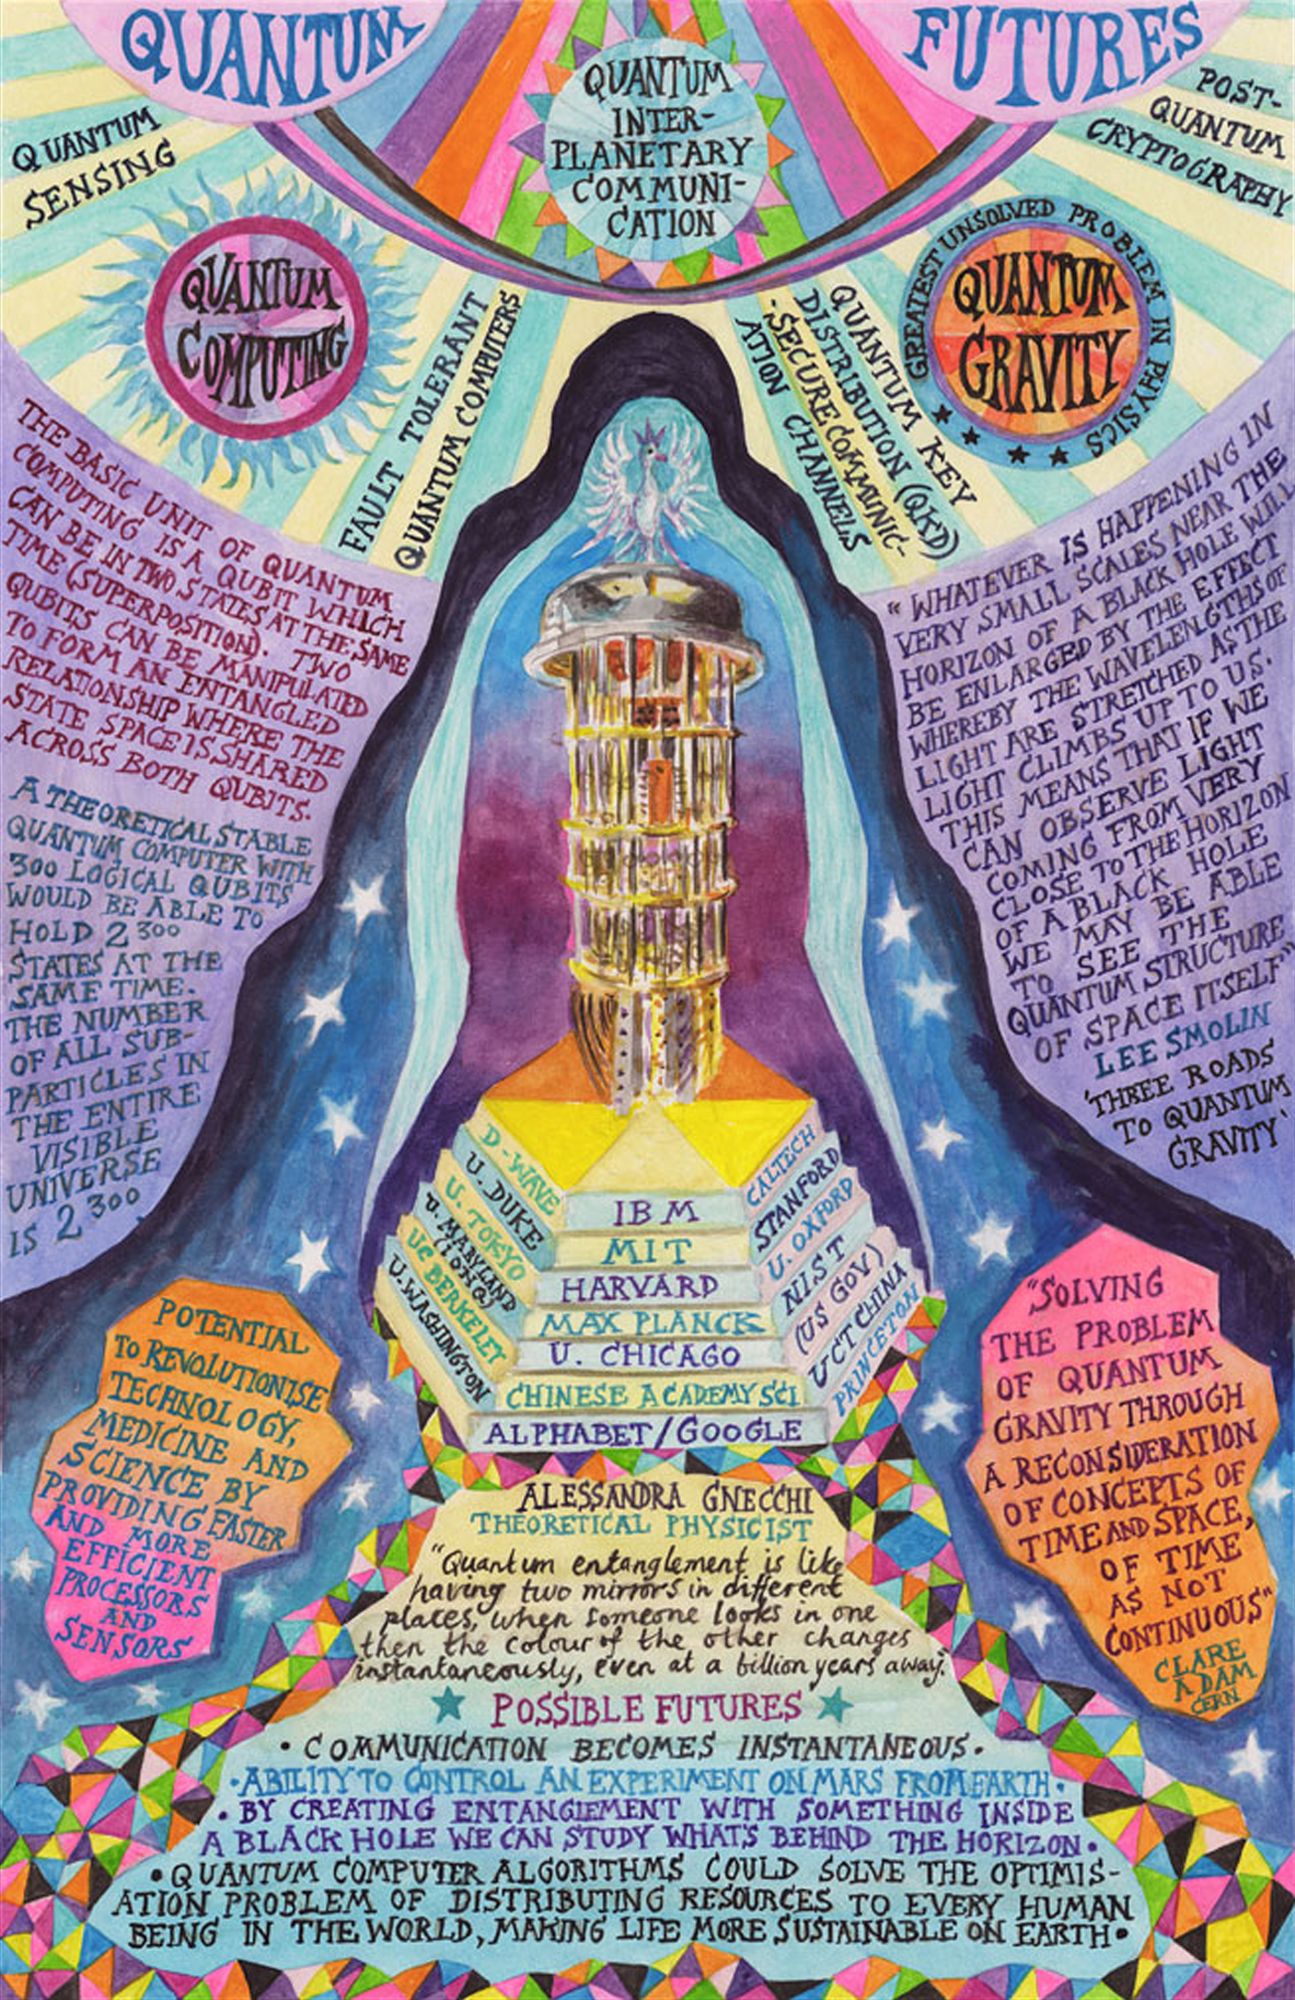 QUANTUM
FUTURES
QUANTUM
INTER-
PLANETARY
COMMUNI-
CATION
QUANTUM
SENSING
POST-
QUANTUM
CRYPTOGRAPHY
QUANTUM
COMPUTING
FAULT TOLERANT
QUANTUM COMPUTERS
QUANTUM KEY
DISTRIBUTION (QKD)
-SECURE COMMUNIC-
ATION CHANNELS
GREATEST UNSOLVED PROBLEM IN PHYSICS
QUANTUM
GRAVITY
THE BASIC UNIT OF QUANTUM
COMPUTING IS A QUBIT WHICH
CAN BE IN TWO STATES AT THE SAME
TIME (SUPERPOSITION). TWO
QUBITS CAN BE MANIPULATED
TO FORM AN ENTANGLED
RELATIONSHIP WHERE THE
STATE SPACE IS SHARED
ACROSS BOTH QUBITS.
A THEORETICAL STABLE
QUANTUM COMPUTER WITH
300 LOGICAL QUBITS
WOULD BE ABLE TO
HOLD 2 300
STATES AT THE
SAME TIME.
THE NUMBER
OF ALL SUB-
PARTICLES IN
THE ENTIRE
VISIBLE
UNIVERSE
IS 2 300
"WHATEVER IS HAPPENING IN
VERY SMALL SCALES NEAR THE
HORIZON OF A BLACK HOLE WILL
BE ENLARGED BY THE EFFECT
WHEREBY THE WAVELENGTHS OF
LIGHT ARE STRETCHED AS THE
LIGHT CLIMBS UP TO US.
THIS MEANS THAT IF WE
CAN OBSERVE LIGHT
COMING FROM VERY
CLOSE TO THE HORIZON
OF A BLACK HOLE
WE MAY BE ABLE
TO SEE THE
QUANTUM STRUCTURE
OF SPACE ITSELF"
LEE SMOLIN
'THREE ROADS
TO QUANTUM
GRAVITY'
D-WAVE
U. DUKE
U. TOKYO
U. MARYLAND
(IONQ)
UC BERKELEY
U. WASHINGTON
IBM
MIT
HARVARD
MAX PLANCK
U. CHICAGO
CHINESE ACADEMY SCI
ALPHABET/GOOGLE
CALTECH
STANFORD
U. OXFORD
NIST
(US GOV)
UCT CHINA
PRINCETON
POTENTIAL
TO REVOLUTIONISE
TECHNOLOGY,
MEDICINE AND
SCIENCE BY
PROVIDING FASTER
AND MORE
EFFICIENT
PROCESSORS
AND
SENSORS
"SOLVING
THE PROBLEM
OF QUANTUM
GRAVITY THROUGH
A RECONSIDERATION
OF CONCEPTS OF
TIME AND SPACE,
OF TIME
AS NOT
CONTINUOUS"
CLARE
ADAM
CERN
ALESSANDRA GNECCHI
THEORETICAL PHYSICIST
"Quantum entanglement is like
having two mirrors in different
places, when someone looks in one
then the colour of the other changes
instantaneously, even at a billion years away.
POSSIBLE FUTURES
• COMMUNICATION BECOMES INSTANTANEOUS •
• ABILITY TO CONTROL AN EXPERIMENT ON MARS FROM EARTH •
• BY CREATING ENTANGLEMENT WITH SOMETHING INSIDE
A BLACK HOLE WE CAN STUDY WHAT'S BEHIND THE HORIZON •
• QUANTUM COMPUTER ALGORITHMS COULD SOLVE THE OPTIMIS-
ATION PROBLEM OF DISTRIBUTING RESOURCES TO EVERY HUMAN
BEING IN THE WORLD, MAKING LIFE MORE SUSTAINABLE ON EARTH •